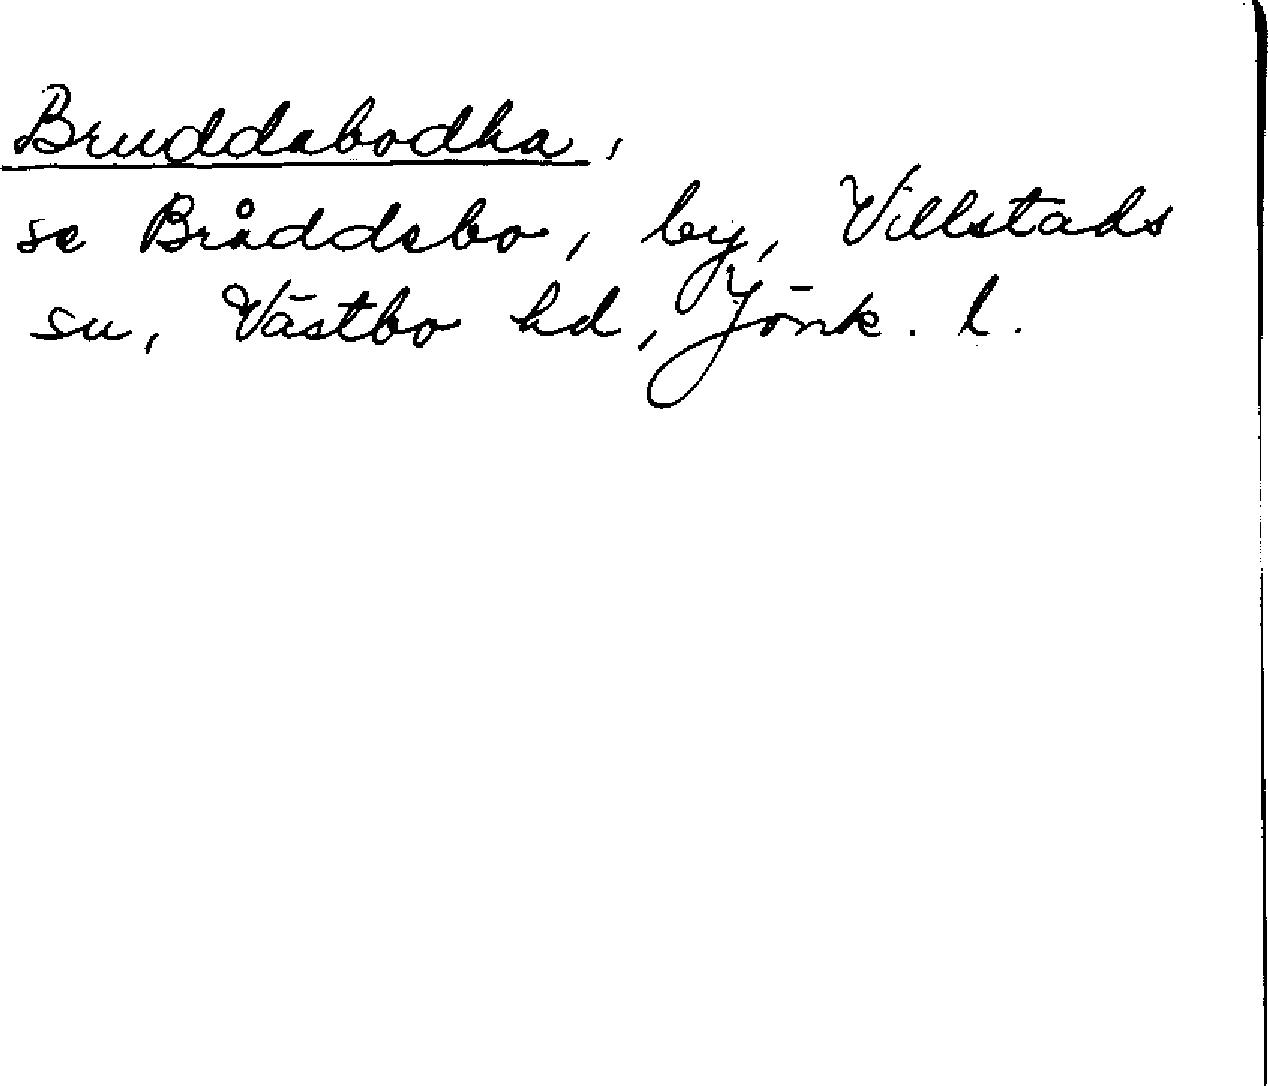 Bruddabodha,
se Bråddebo, by, Villstads
sn, Västbo hd, Jönk. l.